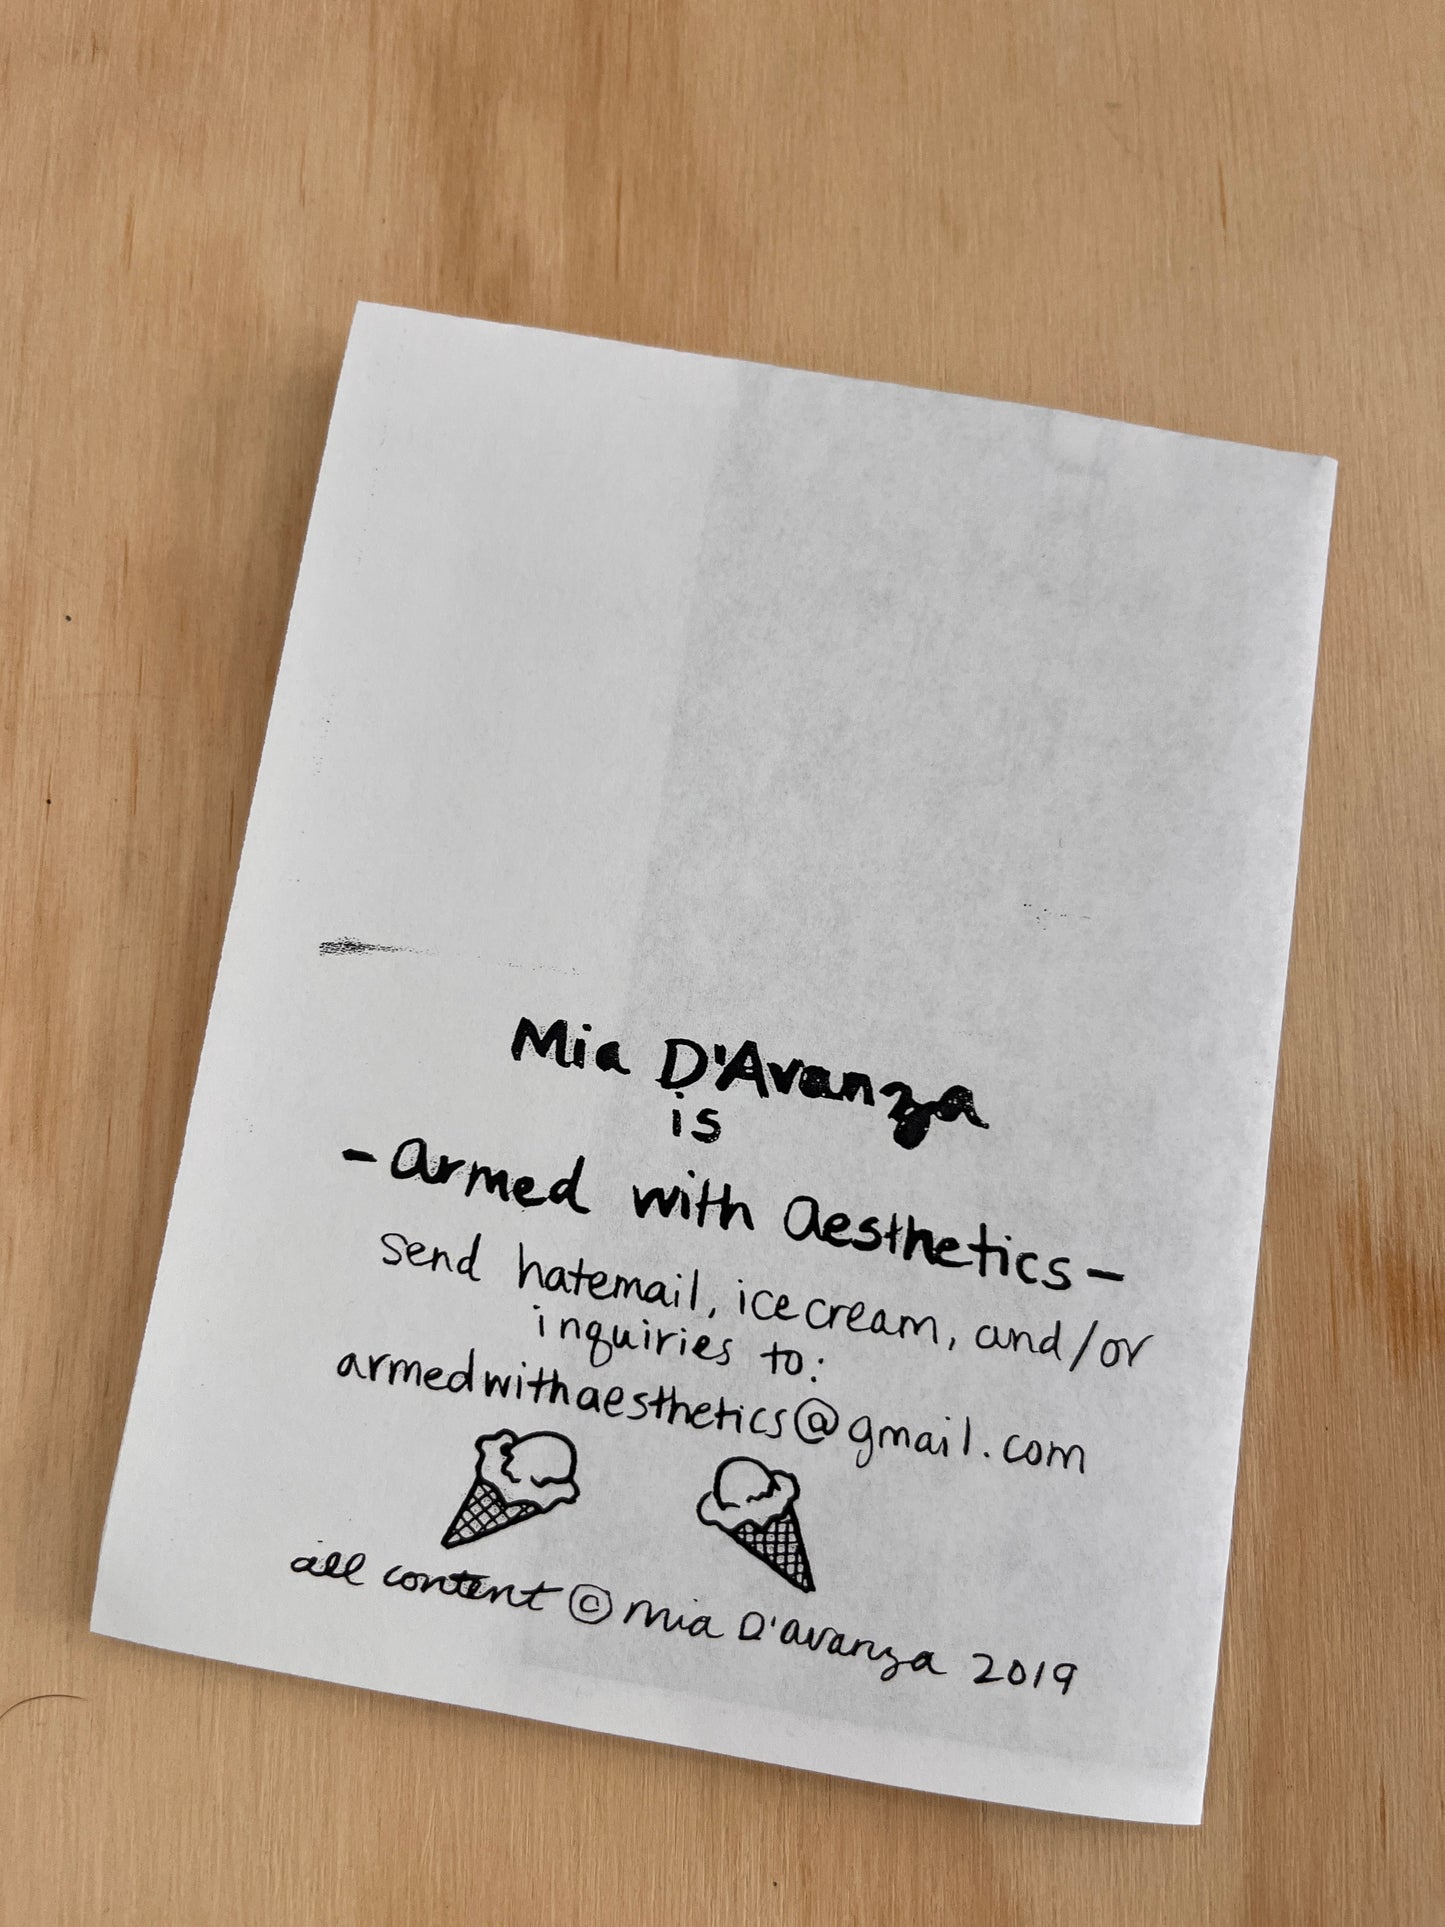 Mia D'Avanza
is
- armed with aesthetics -
send hatemail, ice cream, and/or
inquiries to:
armedwithaesthetics@gmail.com
all content © mia D'avanza 2019